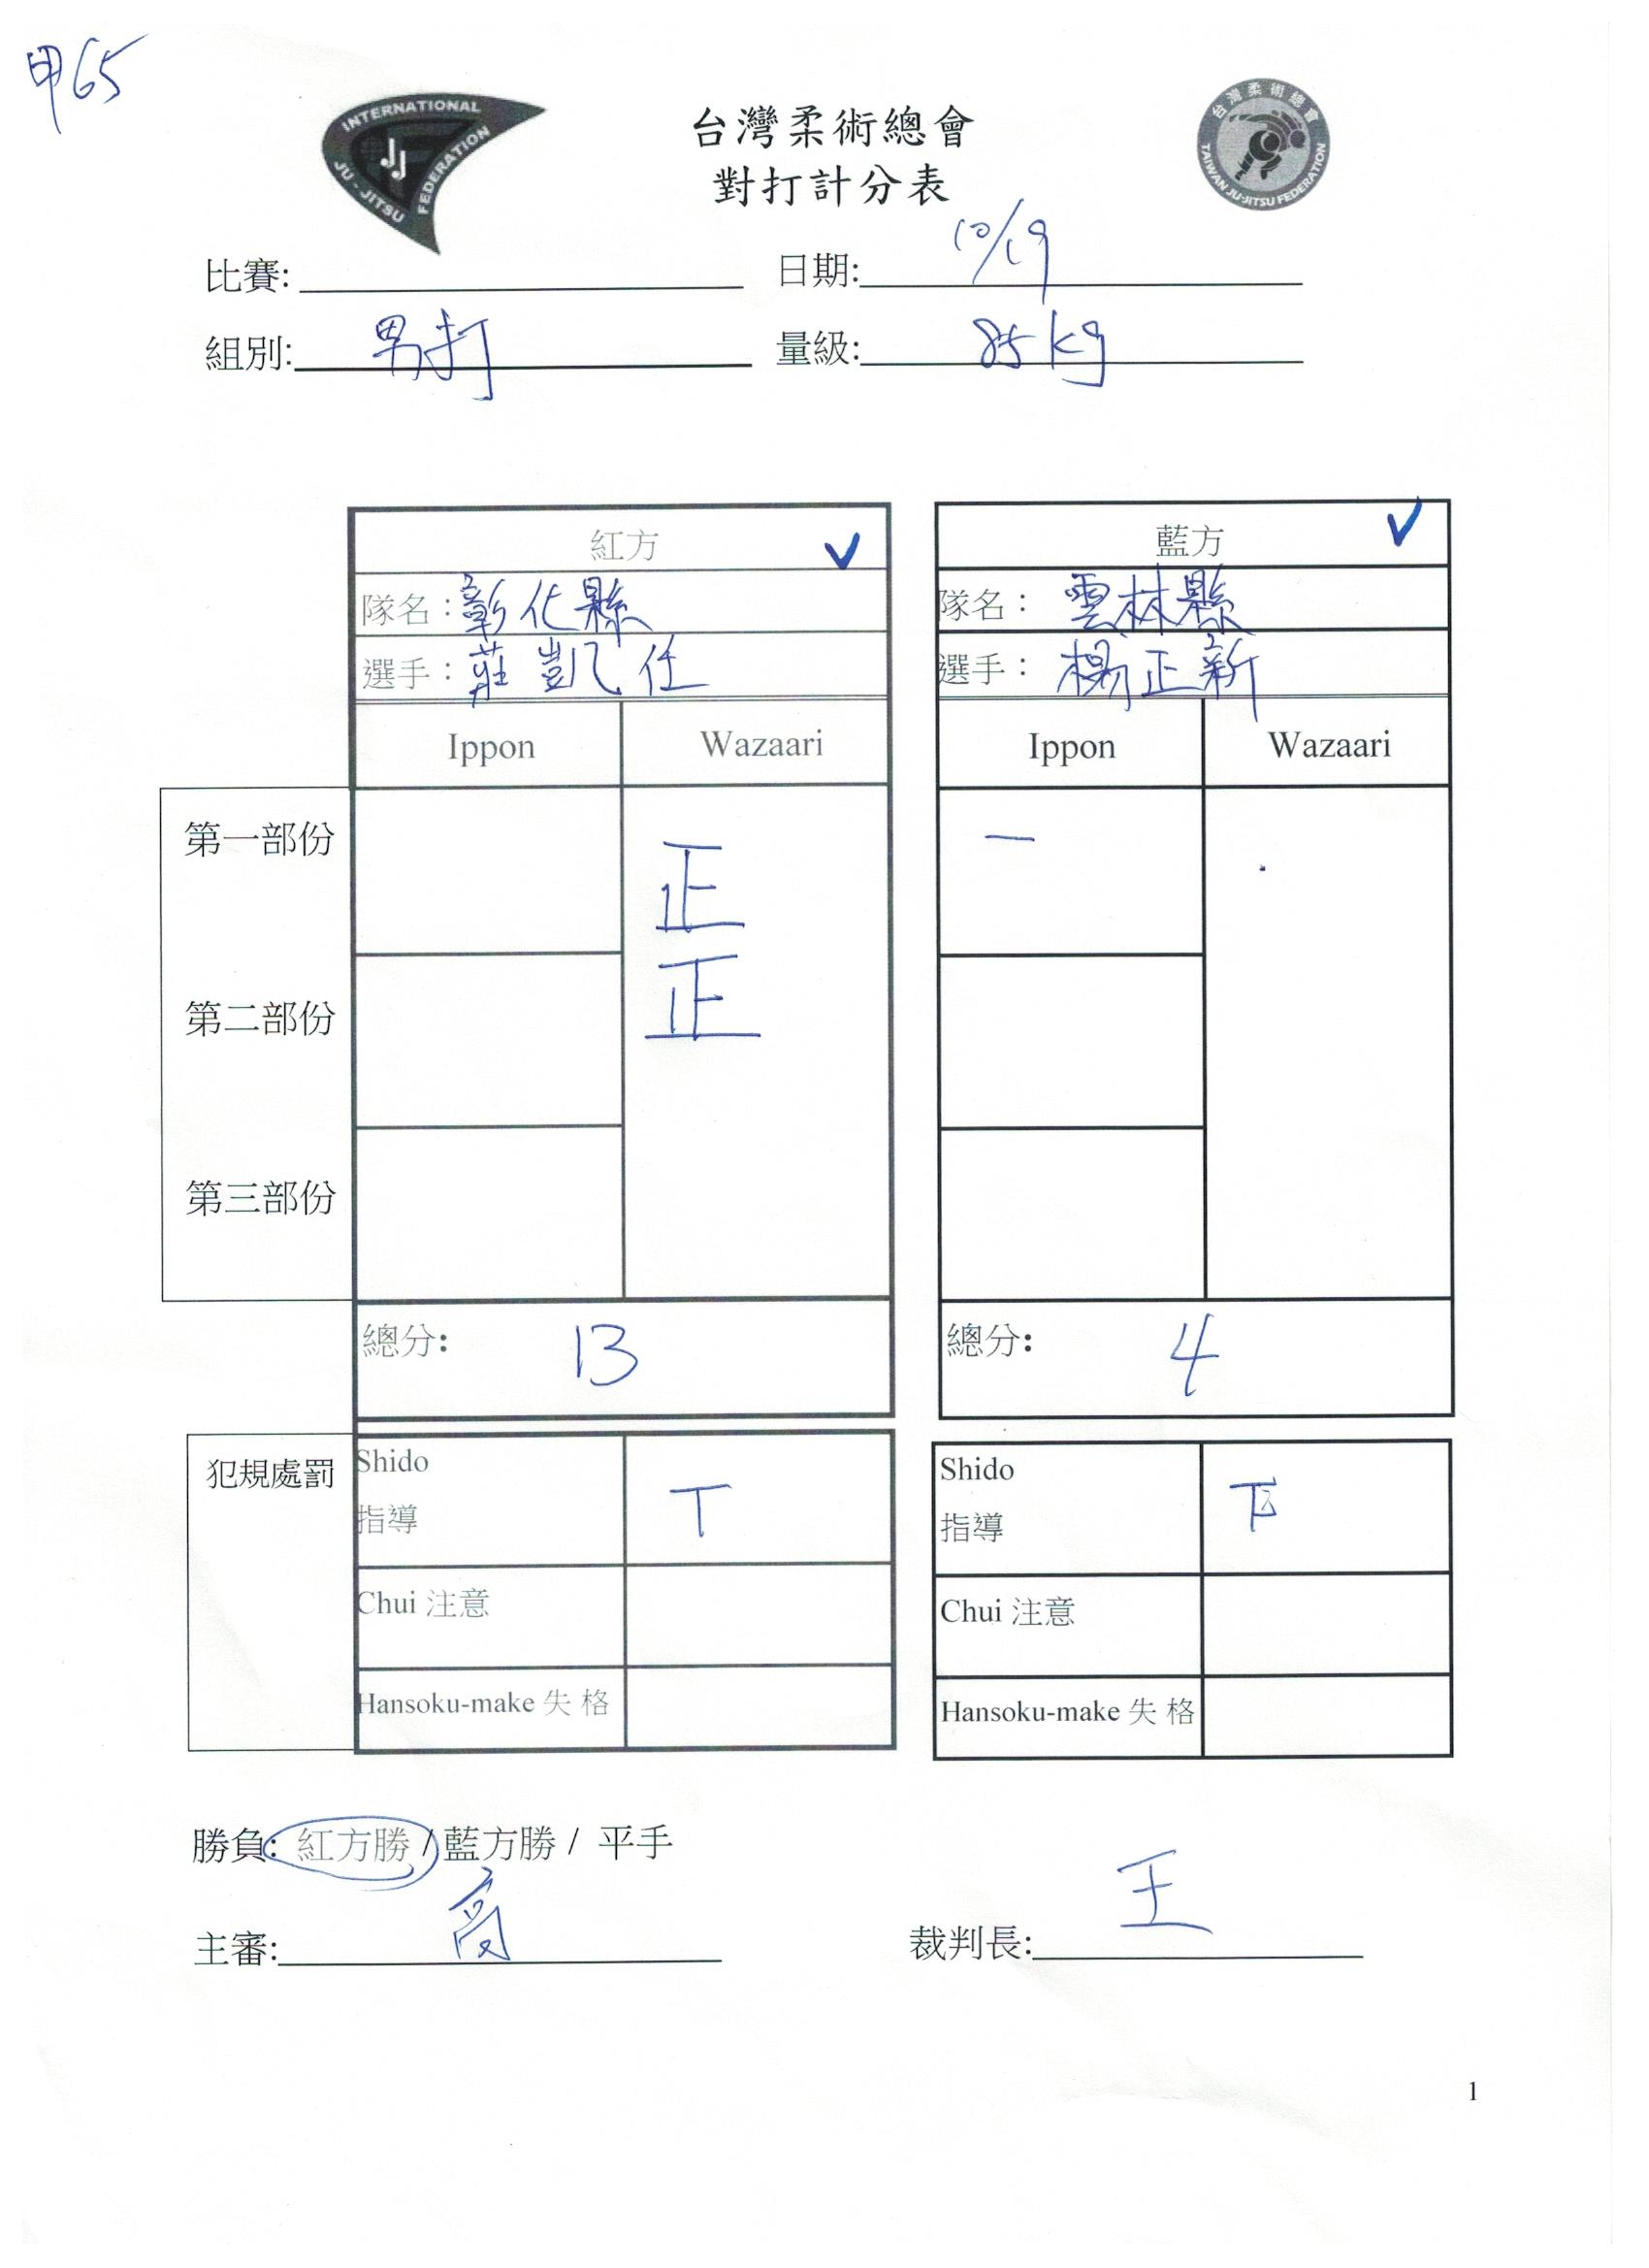 甲65
INTERNATIONAL JU-JITSU FEDERATION
JJ
台灣柔術總會
TAIWAN JU-JITSU FEDERATION
台灣柔術總會
對打計分表
比賽: 日期: 10/19
組別: 男打 量級: 85kg
紅方 ✓ 藍方 ✓
隊名：彰化縣 隊名：雲林縣
選手：莊凱任 選手：楊正新
Ippon Wazaari Ippon Wazaari
第一部份 正 一
第二部份 正
第三部份
總分: 13 總分: 4
犯規處罰 Shido 指導 T Shido 指導
Chui 注意 Chui 注意
Hansoku-make 失 格 Hansoku-make 失 格
勝負: 紅方勝 / 藍方勝 / 平手
主審: 裁判長: 王
1